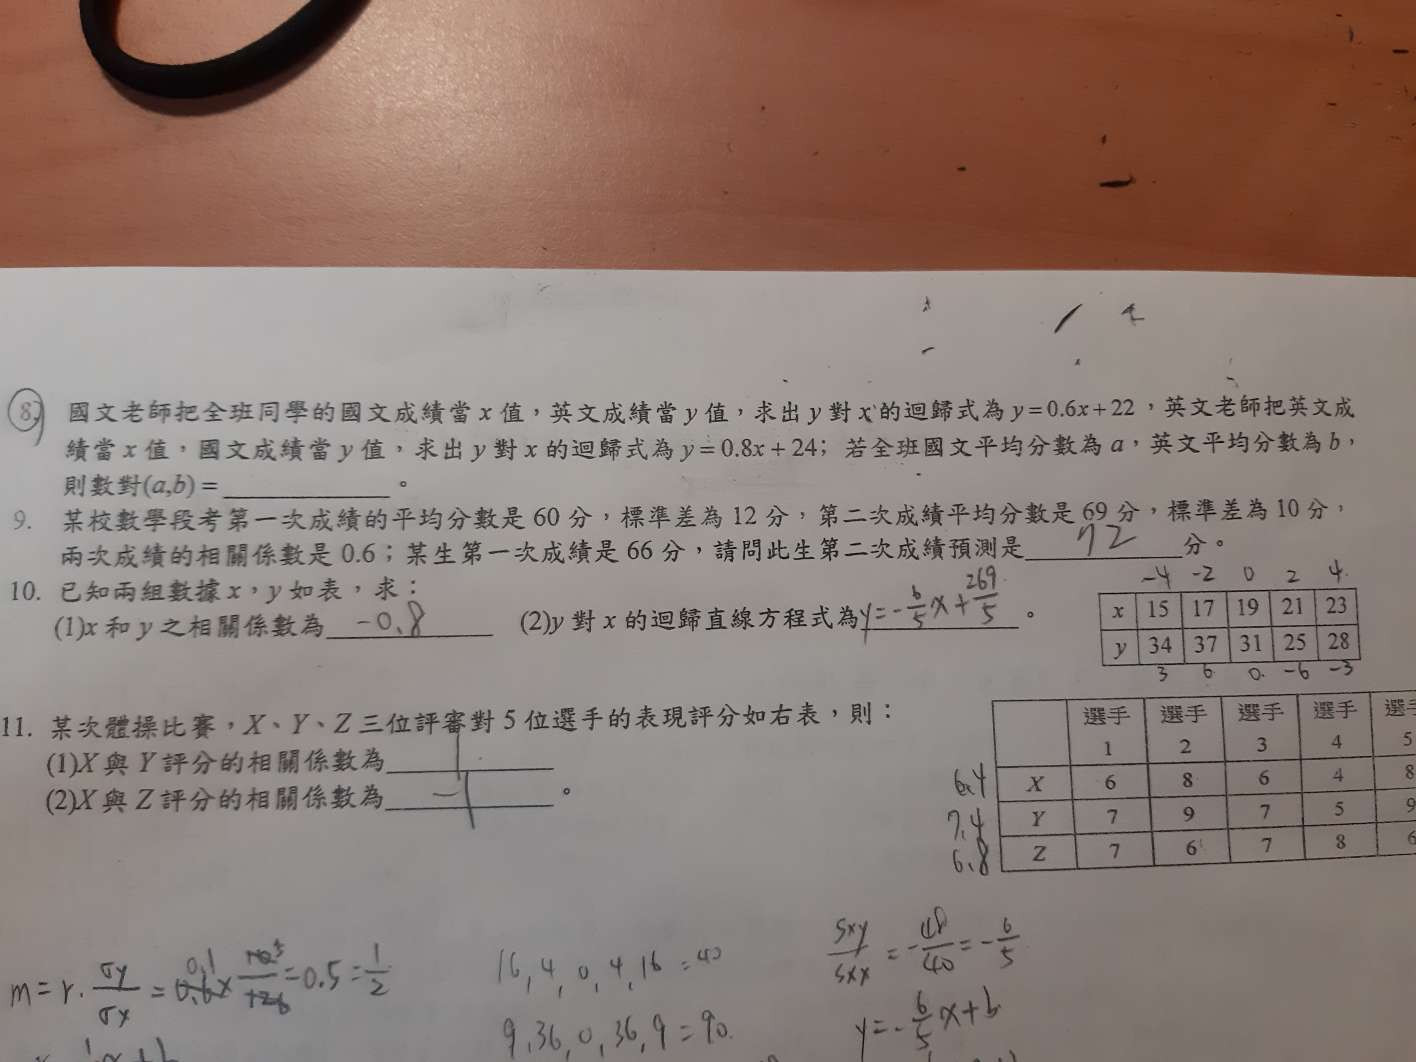 8. 國文老師把全班同學的國文成績當 x 值，英文成績當 y 值，求出 y 對 x 的迴歸式為 y=0.6x+22，英文老師把英文成
績當 x 值，國文成績當 y 值，求出 y 對 x 的迴歸式為 y=0.8x+24；若全班國文平均分數為 a，英文平均分數為 b，
則數對(a,b)=__________。
9. 某校數學段考第一次成績的平均分數是 60 分，標準差為 12 分，第二次成績平均分數是 69 分，標準差為 10 分，
兩次成績的相關係數是 0.6；某生第一次成績是 66 分，請問此生第二次成績預測是 72 分。
-4 -2 0 2 4
10. 已知兩組數據 x，y 如表，求：
x 15 17 19 21 23
(1)x 和 y 之相關係數為 -0.8 (2)y 對 x 的迴歸直線方程式為 y=-6/5x+269/5。
y 34 37 31 25 28
3 6 0 -6 -3
11. 某次體操比賽，X、Y、Z 三位評審對 5 位選手的表現評分如右表，則：
選手 選手 選手 選手 選手
1 2 3 4 5
(1)X 與 Y 評分的相關係數為 1
6.4 X 6 8 6 4 8
(2)X 與 Z 評分的相關係數為 -1。
7.4 Y 7 9 7 5 9
6.8 Z 7 6 7 8 6
Sxy/Sxx = -48/40 = -6/5
16, 4, 0, 4, 16 = 40
m = r · σy/σx = 0.6 × 10/12 = 0.5 = 1/2
y = -6/5x + b
9, 36, 0, 36, 9 = 90